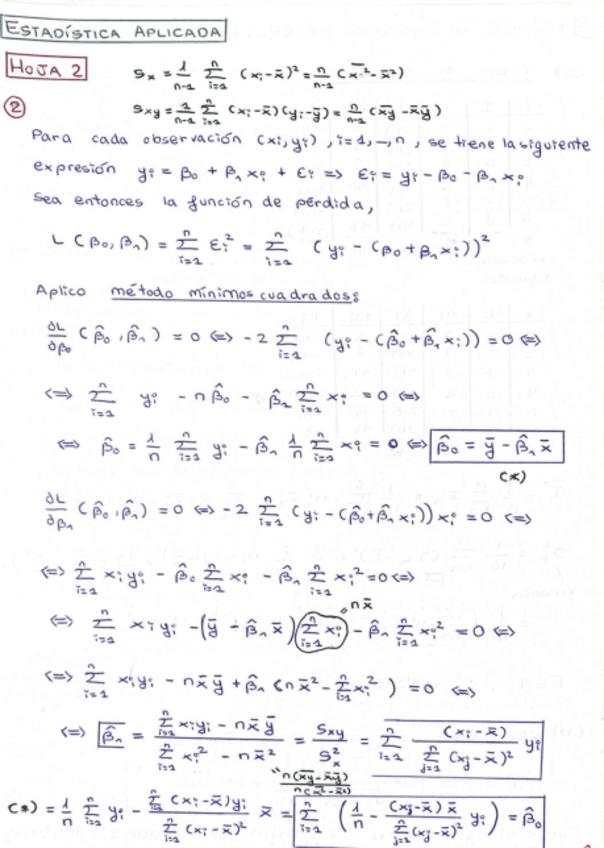 ESTADÍSTICA APLICADA
HOJA 2
Sₓ = 1/(n-1) Σ_{i=1}^{n} (xᵢ-x̄)² = n/(n-1) (x̄²-x̄²)
② Sxy = 1/(n-1) Σ_{i=1}^{n} (xᵢ-x̄)(yᵢ-ȳ) = n/(n-1) (x̄ȳ-x̄ȳ)
Para cada observación (xi,yi), i=1,...,n, se tiene la siguiente
expresión yᵢ = β₀ + β₁xᵢ + εᵢ => εᵢ = yᵢ - β₀ - β₁xᵢ
Sea entonces la función de pérdida,
L(β₀,β₁) = Σ_{i=1}^{n} εᵢ² = Σ_{i=1}^{n} (yᵢ - (β₀+β₁xᵢ))²
Aplico método mínimos cuadrados:
∂L/∂β₀ (β̂₀,β̂₁) = 0 <=> -2 Σ_{i=1}^{n} (yᵢ-(β̂₀+β̂₁xᵢ)) = 0 <=>
<=> Σ_{i=1}^{n} yᵢ - nβ̂₀ - β̂₁ Σ_{i=1}^{n} xᵢ = 0 <=>
<=> β̂₀ = 1/n Σ_{i=1}^{n} yᵢ - β̂₁ 1/n Σ_{i=1}^{n} xᵢ = 0 <=> β̂₀ = ȳ - β̂₁x̄
(*)
∂L/∂β₁ (β̂₀,β̂₁) = 0 <=> -2 Σ_{i=1}^{n} (yᵢ-(β̂₀+β̂₁xᵢ))xᵢ = 0 <=>
<=> Σ_{i=1}^{n} xᵢyᵢ - β̂₀ Σ_{i=1}^{n} xᵢ - β̂₁ Σ_{i=1}^{n} xᵢ² = 0 <=>
" nx̄
<=> Σ_{i=1}^{n} xᵢyᵢ - (ȳ - β̂₁x̄) Σ_{i=1}^{n} xᵢ - β̂₁ Σ_{i=1}^{n} xᵢ² = 0 <=>
<=> Σ_{i=1}^{n} xᵢyᵢ - nx̄ȳ + β̂₁(nx̄² - Σ_{i=1}^{n} xᵢ²) = 0 <=>
<=> β̂₁ = (Σ_{i=1}^{n} xᵢyᵢ - nx̄ȳ)/(Σ_{i=1}^{n} xᵢ² - nx̄²) = Sxy/Sₓ² Σ_{i=1}^{n} (xᵢ-x̄)/(Σ_{j=1}^{n} (xⱼ-x̄)²) yᵢ
" n(xy-x̄ȳ)/n(x²-x̄²)
(*) = 1/n Σ_{i=1}^{n} yᵢ (Σ_{i=1}^{n} (xᵢ-x̄)yᵢ)/(Σ_{i=1}^{n} (xᵢ-x̄)²) x̄ = Σ_{i=1}^{n} (1/n - ((xⱼ-x̄)x̄)/(Σ_{j=1}^{n} (xⱼ-x̄)²) yᵢ) = β̂₀